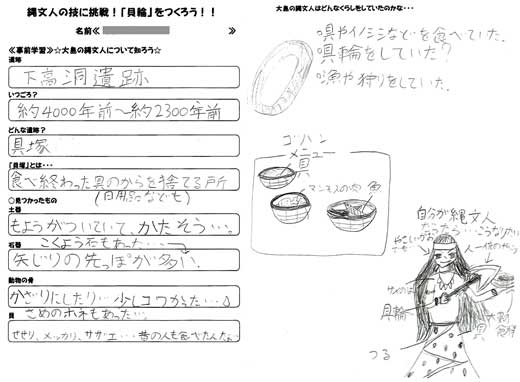 縄文人の技に挑戦！「貝輪」をつくろう！！
名前≪
≪事前学習≫☆大島の縄文人について知ろう☆
遺跡
下高洞遺跡
いつごろ？
約4000年前～約2300年前
どんな遺跡？
貝塚
「貝塚」とは・・・
食べ終わった貝のからを捨てる所
(日用品なども)
○見つかったもの
土器
もようがついていて、かたそう…。
石器
こくようせきもあった…
矢じりの先っぽが多い。
動物の骨
かざりにしたり…少しコワかった…
さめのホネもあった…。
貝
サザエ…昔の人も食べたんだぁ
大島の縄文人はどんなくらしをしていたのかな・・・
・貝やイノシシなどを食べていた。
・貝輪をしていた？
・漁や狩りをしていた。
ゴハン
メニュー
貝
マンモスの肉
魚
自分が縄文人
だったら…こうなりたい
貝輪
貝
つる